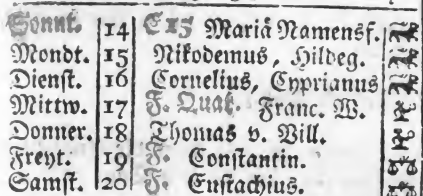 Sonnt. 14 E 15 Mariä Namensf.
Mondt. 15 Nikodemus, Hildeg.
Dienst. 16 Cornelius, Cyprianus
Mittw. 17 F. Quat. Franc. W.
Donner. 18 Thomas v. Vill.
Freyt. 19 F. Constantin.
Samst. 20 F. Eustachius.